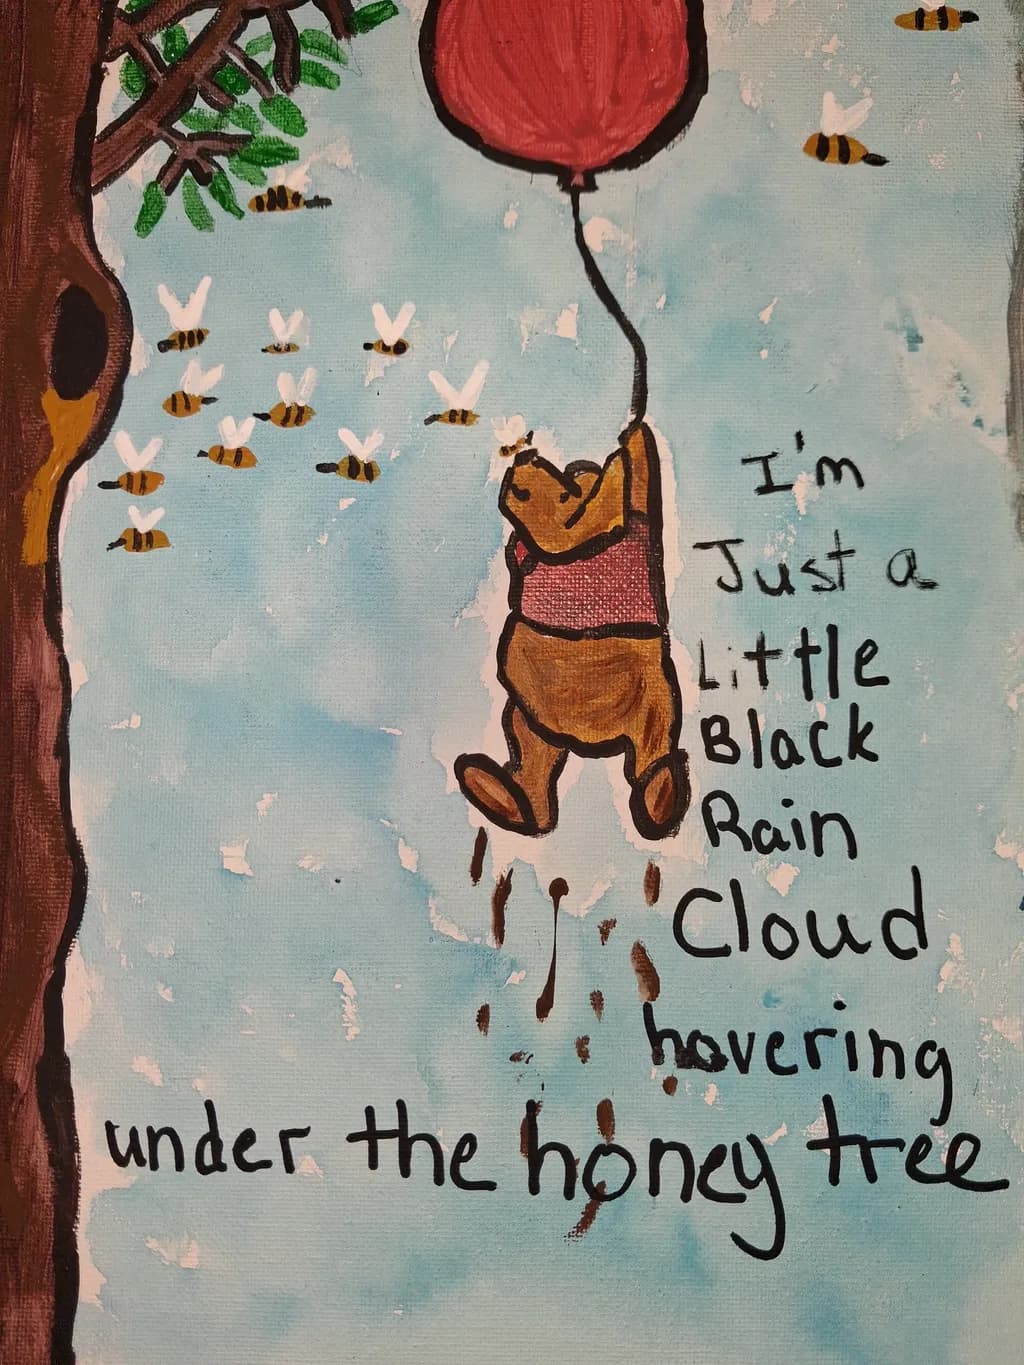 I'm
Just a
Little
Black
Rain
Cloud
hovering
under the honey tree